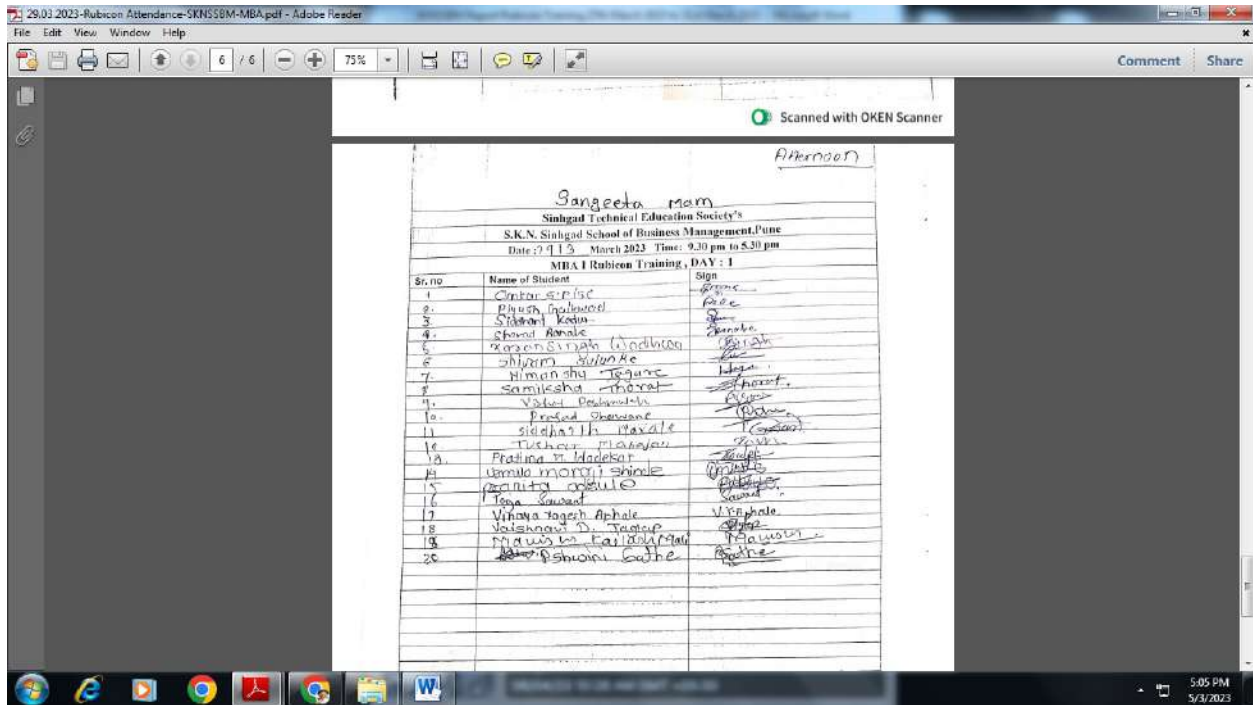 29.03.2023-Rubicon Attendance-SKNSSBM-MBA.pdf - Adobe Reader
File Edit View Window Help
6 / 6 75% Comment Share
Scanned with OKEN Scanner
Afternoon
Sangeeta mam
Sinhgad Technical Education Society's
S.K.N. Sinhgad School of Business Management,Pune
Date : March 2023 Time: 9.30 pm to 5.30 pm
MBA I Rubicon Training , DAY : 1
Sr. no Name of Student Sign
1 Omkar S. Pise
2. Piyush Gaikwad
3 Siddhant Kadus
4. Sharad Ranake
5 Karan Singh
6 Shivam Sulunke
7. Himanshu Tegure
8 Samiksha Thorat Thorat.
9.
10. Prasad
11 Siddharth
12 Tushar Mahajan
13. Pratima M. Wadekar
14 moraji Shinde
15
16 Sawant Sawant
17 Vinaya Yogesh Aphale V.Y.Aphale
18 Vaishnavi D. Jagtap
19 Kailash Mali
20 Ashwini Sathe Sathe
5:05 PM
5/3/2023